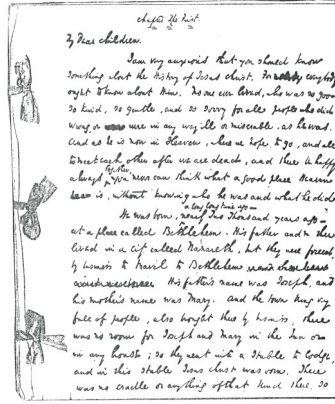 Chapter The First.
My Dear Children,
I am very anxious that you should know
something about the History of Jesus Christ. For everybody
ought to know about Him. No one ever lived, who was so good,
so kind, so gentle, and so sorry for all people who did
wrong, or were in any way ill or miserable, as he was.
And as he is now in Heaven, where we hope to go, and all
to meet each other after we are dead, and there be happy
always together, you never can think what a good place Heaven
is, without knowing who he was and what he did.
He was born, a long long time ago— nearly Two Thousand years ago—
at a place called Bethlehem. His father and mother
lived in a city called Nazareth, but they were forced,
by business to travel to Bethlehem
His father's name was Joseph, and
his mother's name was Mary. And the town being very
full of people, also brought there by business, there
was no room for Joseph and Mary in the Inn or
in any house; so they went into a Stable to lodge,
and in this stable Jesus Christ was born. There
was no cradle or anything of that kind there, so